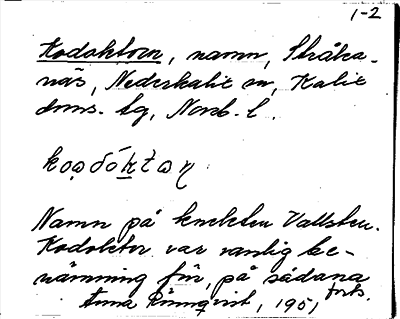 1-2
Kodoktorn, namn, Stråka-
näs, Nederkalix sn, Kalix
doms. tg, Norrb. l.
Namn på knekten Vallsten.
Kodoktor var vanlig be-
nämning för, på sådana
forts.
Anna Rönnqvist, 1951